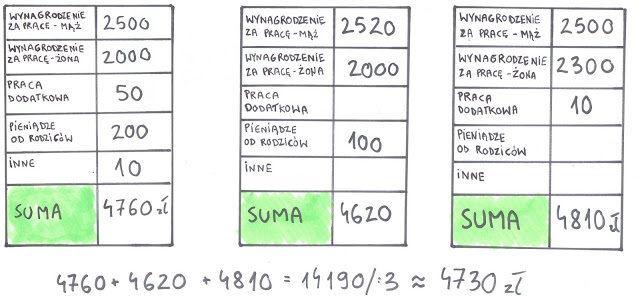 WYNAGRODZENIE
ZA PRACĘ - MĄŻ 2500
WYNAGRODZENIE
ZA PRACĘ - ŻONA 2000
PRACA
DODATKOWA 50
PIENIĄDZE
OD RODZICÓW 200
INNE 10
SUMA 4760 zł
WYNAGRODZENIE
ZA PRACĘ - MĄŻ 2520
WYNAGRODZENIE
ZA PRACĘ - ŻONA 2000
PRACA
DODATKOWA
PIENIĄDZE
OD RODZICÓW 100
INNE
SUMA 4620
WYNAGRODZENIE
ZA PRACĘ - MĄŻ 2500
WYNAGRODZENIE
ZA PRACĘ - ŻONA 2300
PRACA
DODATKOWA 10
PIENIĄDZE
OD RODZICÓW
INNE
SUMA 4810 zł
4760 + 4620 + 4810 = 14190/:3 ≈ 4730 zł